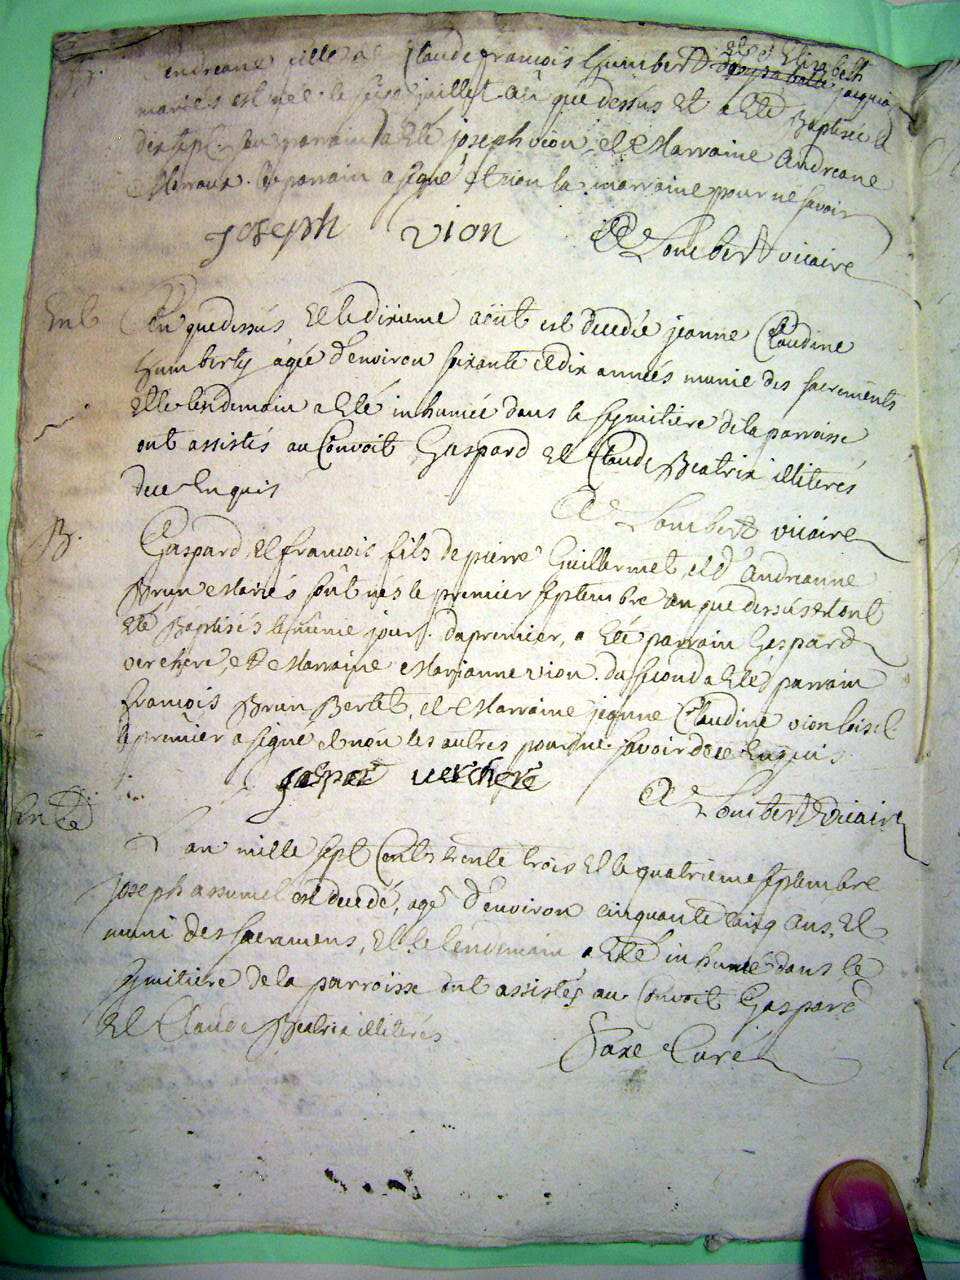 B. andreane fille de Claude françois humbert et d'Elizabeth
jacquia
mariés est née le juillet an que dessus et a eté Baptisée le
son parrain a eté joseph vion, et Marraine Andreane
le parrain a signé et non la marraine pour ne savoir
joseph vion Loubert vicaire
Ent
L'an que dessus et le dixieme aöüt est decedée jeanne Claudine
humbert agée d'environ soixante et dix années munie des sacrements
et le lendemain a eté inhumée dans le symitière de la parroisse
ont assistés au Convoit Gaspard et Claude Beatrix illiterés
de ce enquis
Loubert vicaire
B.
Gaspard et françois fils de pierre Guillermet et d'andreanne
Brun Mariés sont nés le premier septembre an que dessus et ont
eté Baptisés le même jour. du premier, a eté parrain Gaspard
verchere, et Marraine Marianne vion. du second a eté parrain
françois Brun Bertet, et Marraine jeanne Claudine vion
le premier a signé et non les autres pour ne savoir de ce Enquis
gaspar verchere
Loubert vicaire
Ent
L'an mille sept Cents trente trois et le quatrieme septembre
joseph assumel est decedé, agé d'environ cinquante cinq ans, et
muni des sacremens, et le lendemain a eté inhumé dans le
symitiere de la parroisse ont assistés au Convoit Gaspard
et Claude Beatrix illiterés
Saxe Curé